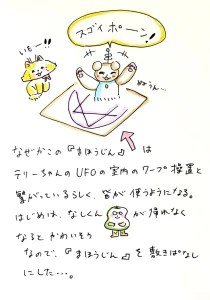 スゴイポーン!
いもー!!
ぬうん…
なぜかこの『まほうじん』は
テリーちゃんのUFOの室内のワープ装置と
繋がっているらしく、皆が使うようになる。
はじめは、なしくんが帰れなく
なるとかわいそう
なので、『まほうじん』を敷きぱなし
にした…。